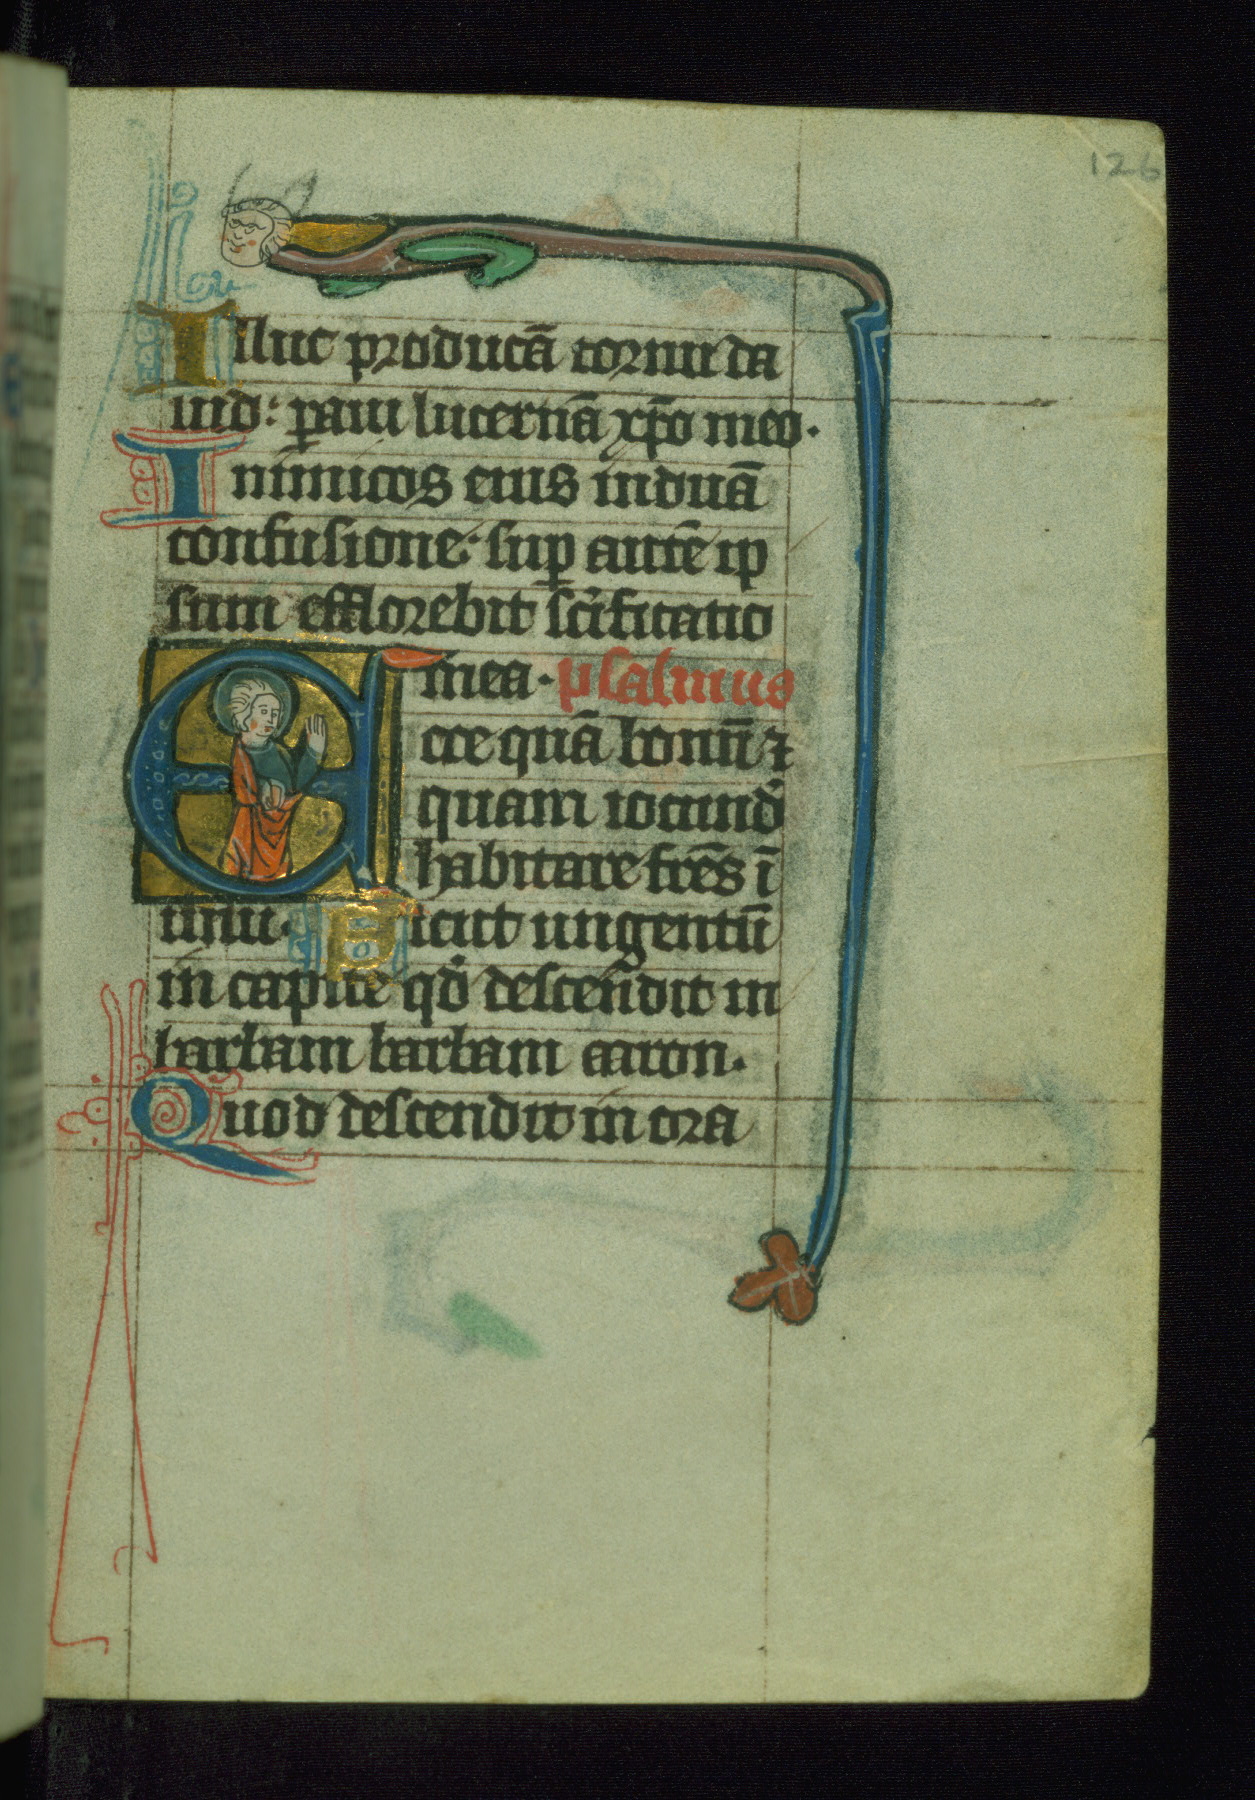 126
Illuc producā cornu da
uid: paui lucernā xp̄o meo.
Inimicos eius induā
confusione: sup autē ip
sum efflorebit sc̄ificatio
mea. psalmus
Ecce quā bonū ⁊
quam iocund'
habitare fr̄es ī
unū. Sicut ungentū
in capite qd̓ descendit in
barbam barbam aaron.
Quod descendit in ora